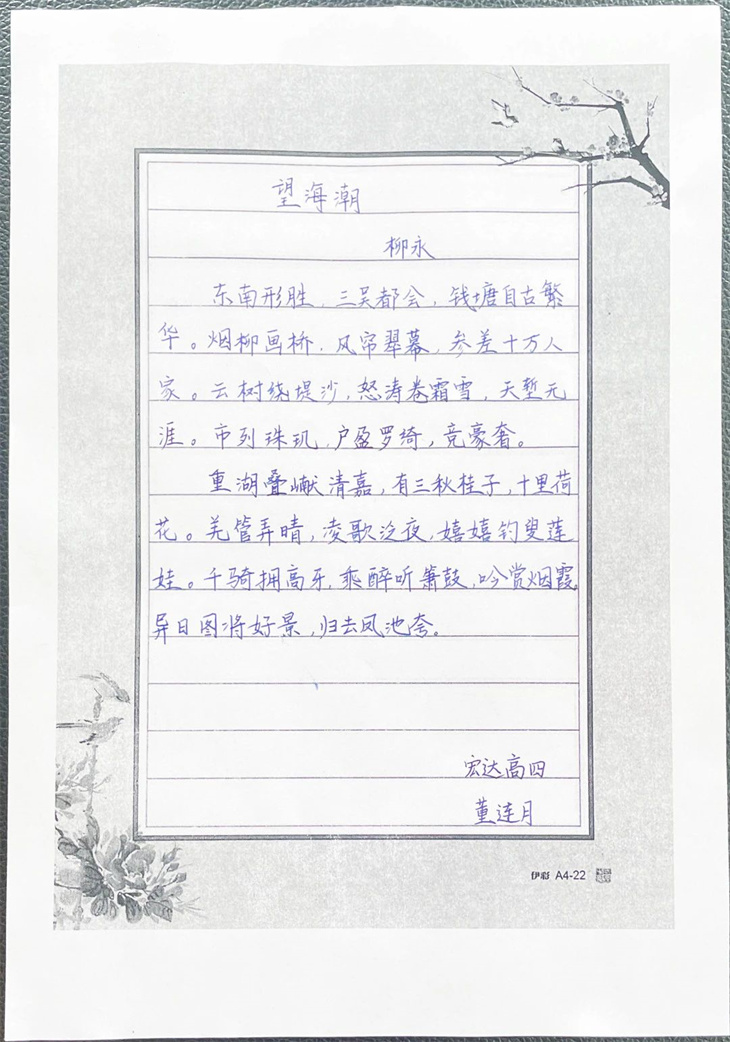 望海潮
柳永
东南形胜，三吴都会，钱塘自古繁
华。烟柳画桥，风帘翠幕，参差十万人
家。云树绕堤沙，怒涛卷霜雪，天堑无
涯。市列珠玑，户盈罗绮，竞豪奢。
重湖叠巘清嘉，有三秋桂子，十里荷
花。羌管弄晴，凌歌泛夜，嬉嬉钓叟莲
娃。千骑拥高牙，乘醉听箫鼓，吟赏烟霞
异日图将好景，归去凤池夸。
宏达高四
董连月
伊彩 A4-22